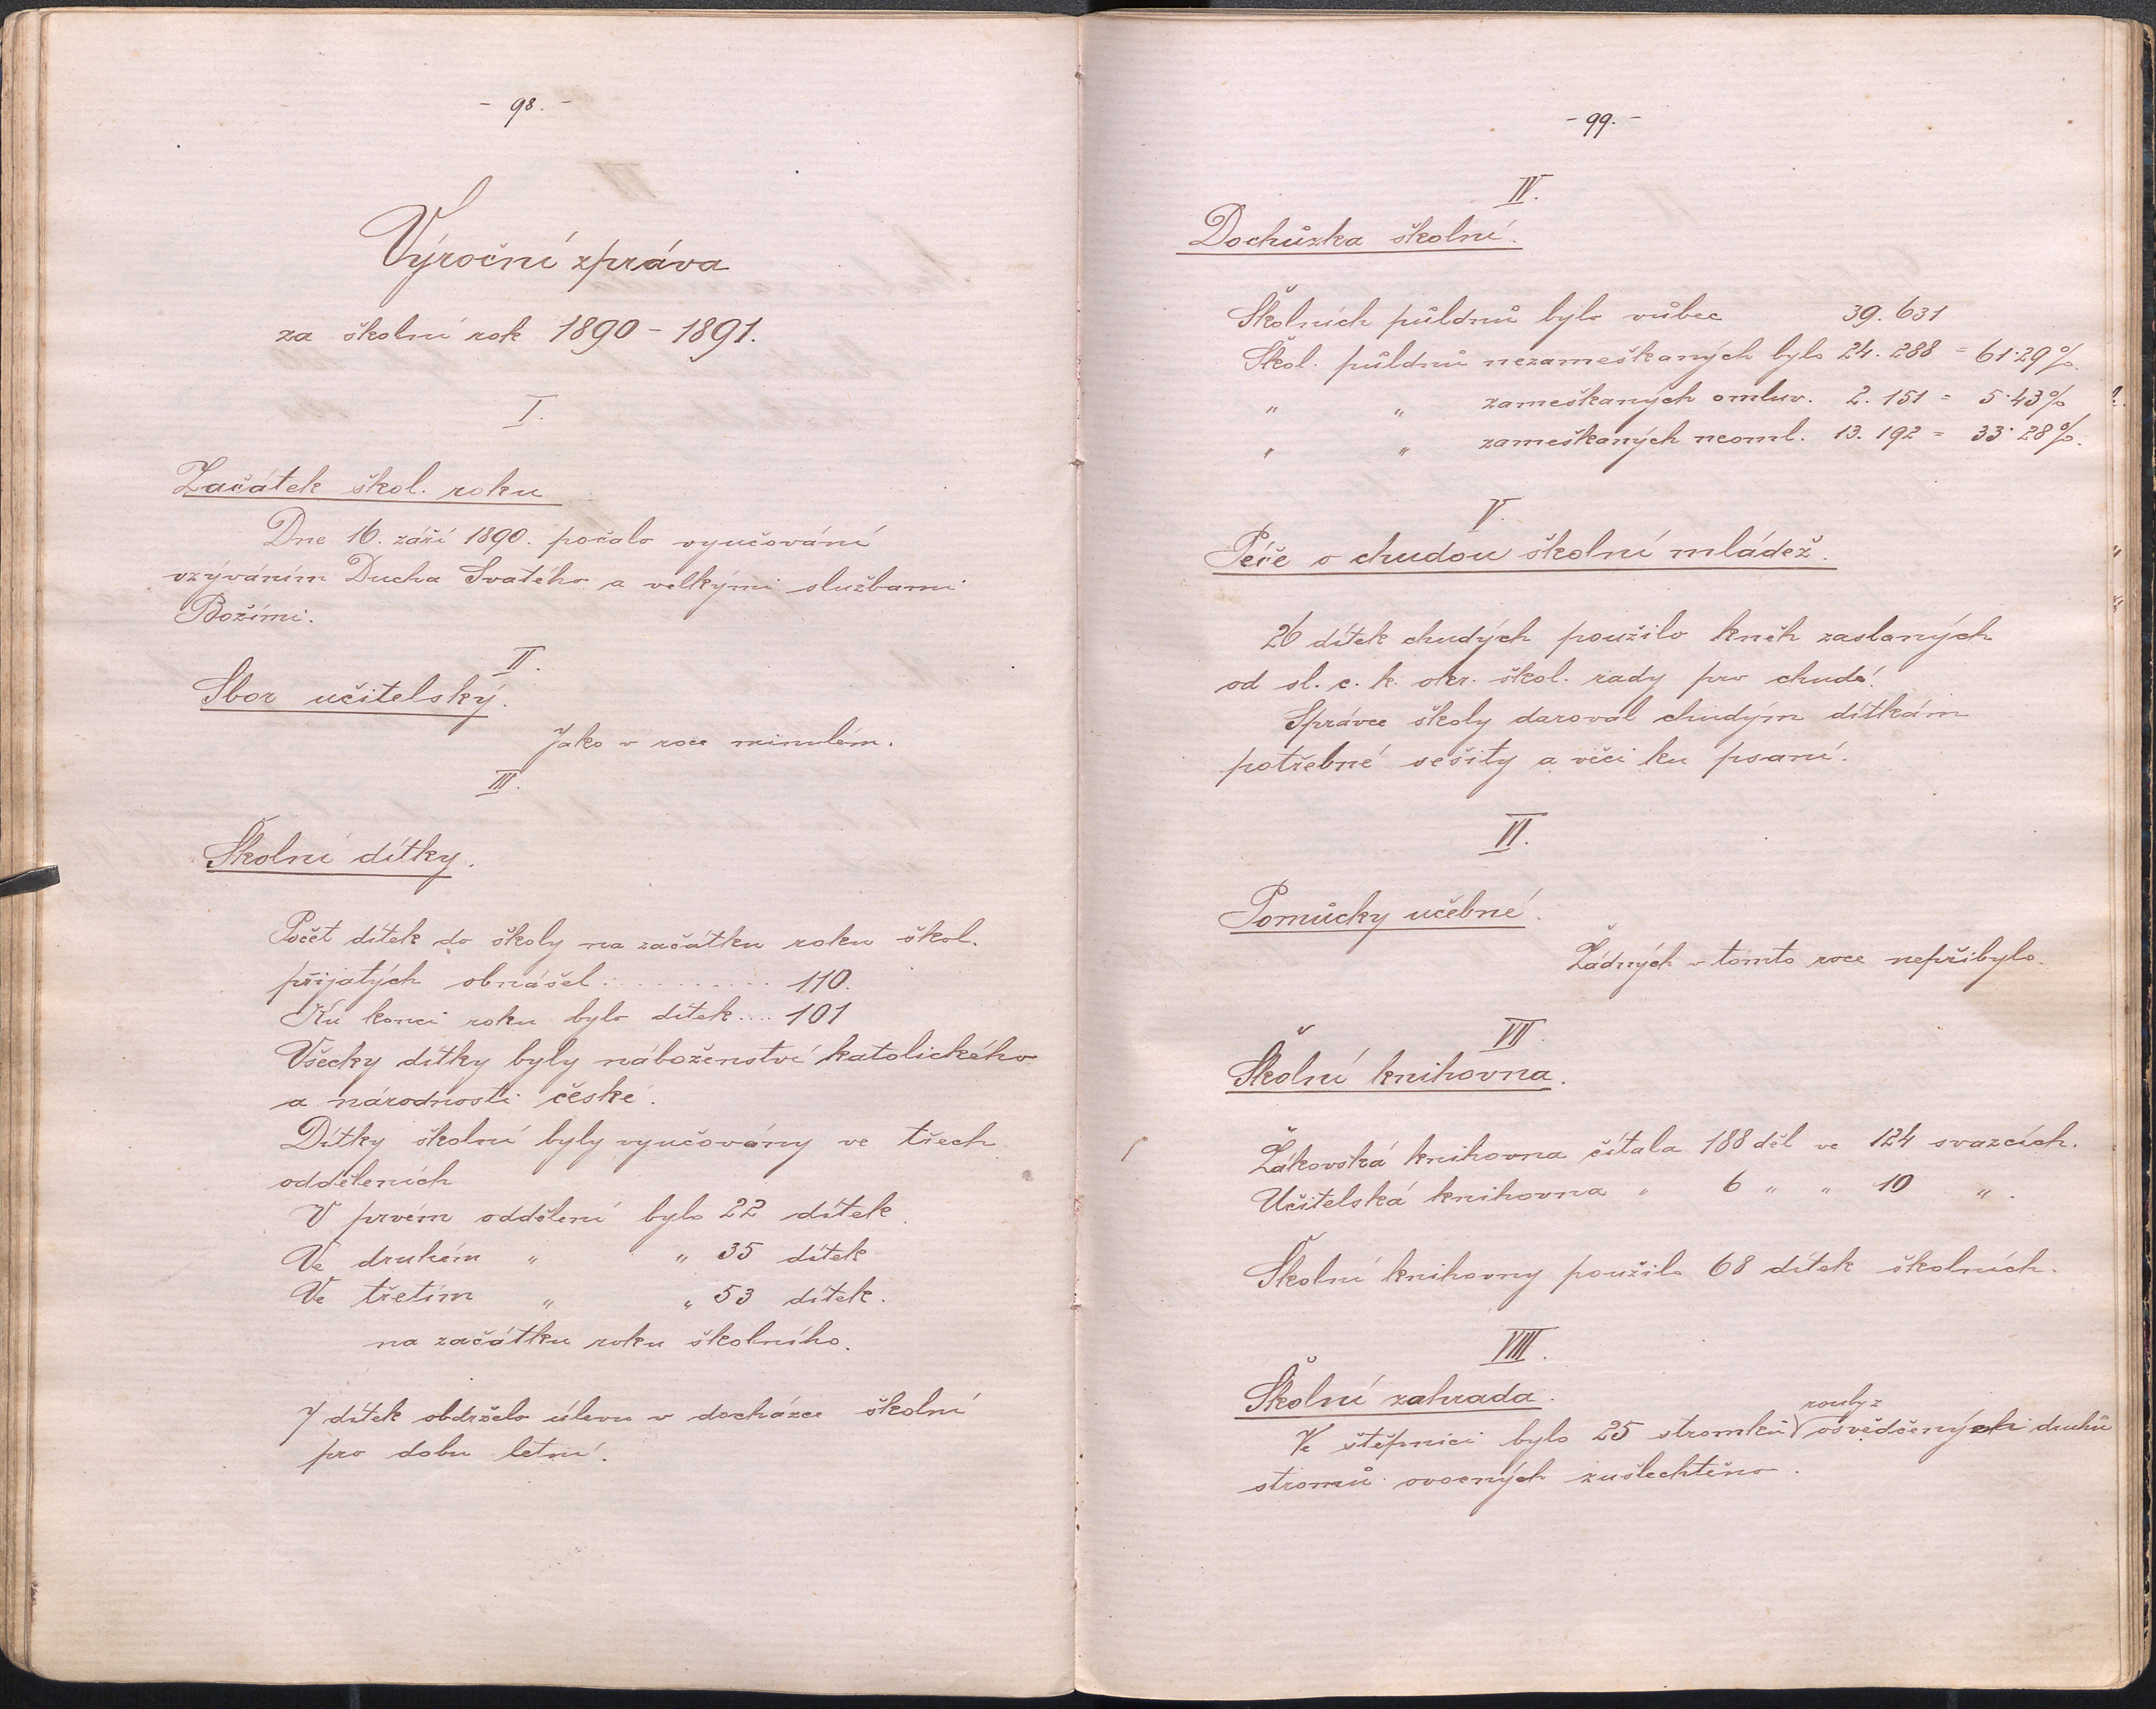 - 98. -
Výroční zpráva
za školní rok 1890 - 1891.
I.
Začátek škol. roku
Dne 16. září 1890. počalo vyučování
vzýváním Ducha Svatého a velkými službami
Božími.
II.
Sbor učitelský.
Jako v roce minulém.
III.
Školní dítky.
Počet dítek do školy na začátku roku škol.
přijatých obnášel : . . . . . . . . . 110.
Ku konci roku bylo dítek .... 101
Všecky dítky byly náboženství katolického
a národnosti české.
Dítky školní byly vyučovány ve třech
odděleních
V prvém oddělení bylo 22 dítek.
Ve druhém " " 35 dítek
Ve třetím " " 53 dítek.
na začátku roku školního.
7 dítek obdrželo úlevu v docházce školní
pro dobu letní.
- 99. -
IV.
Dochůzka školní.
Školních půldnů bylo vůbec 39. 631
Škol. půldnů nezameškaných bylo 24. 288 = 61·29%.
" " zameškaných omluv. 2. 151 = 5·43%
" " zameškaných neoml. 13. 192 = 33·28%.
V.
Péče o chudou školní mládež.
26 dítek chudých použilo kněh zaslaných
od sl. c. k. okr. škol. rady pro chudé.
Správce školy daroval chudým dítkám
potřebné sešity a věci ku psaní.
VI.
Pomůcky učebné.
Žádných v tomto roce nepřibylo.
VII.
Školní knihovna.
Žákovská knihovna čítala 188 děl ve 124 svazcích.
Učitelská knihovna " 6 " " 10 ".
Školní knihovny použilo 68 dítek školních.
VIII.
Školní zahrada.
rouby z
Ve štěpnici bylo 25 stromků osvědčených druhů
stromů ovocných zušlechtěno.